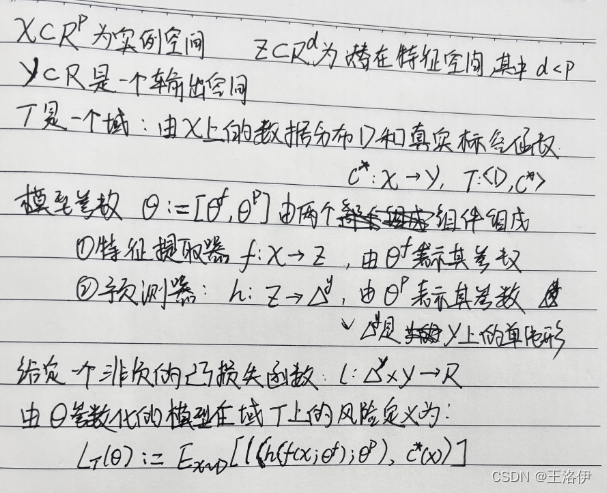 X⊂R^p为实例空间 Z⊂R^d为潜在特征空间,其中d<p
Y⊂R是一个输出空间
T是一个域:由X上的数据分布D和真实标签函数
c*:X→Y, T:<D,c*>
模型参数 θ:=[θ^f,θ^p]由两个组件组成
①特征提取器 f:X→Z ,由θ^f表示其参数
②预测器: h:Z→Δ^y,由θ^p表示其参数
Δ^y是Y上的单纯形
给定一个非负的凸损失函数:l:Δ^y×Y→R
由θ参数化的模型在域T上的风险定义为:
L_T(θ):=E_{x~D}[l(h(f(x;θ^f);θ^p),c*(x))]
CSDN @王洛伊